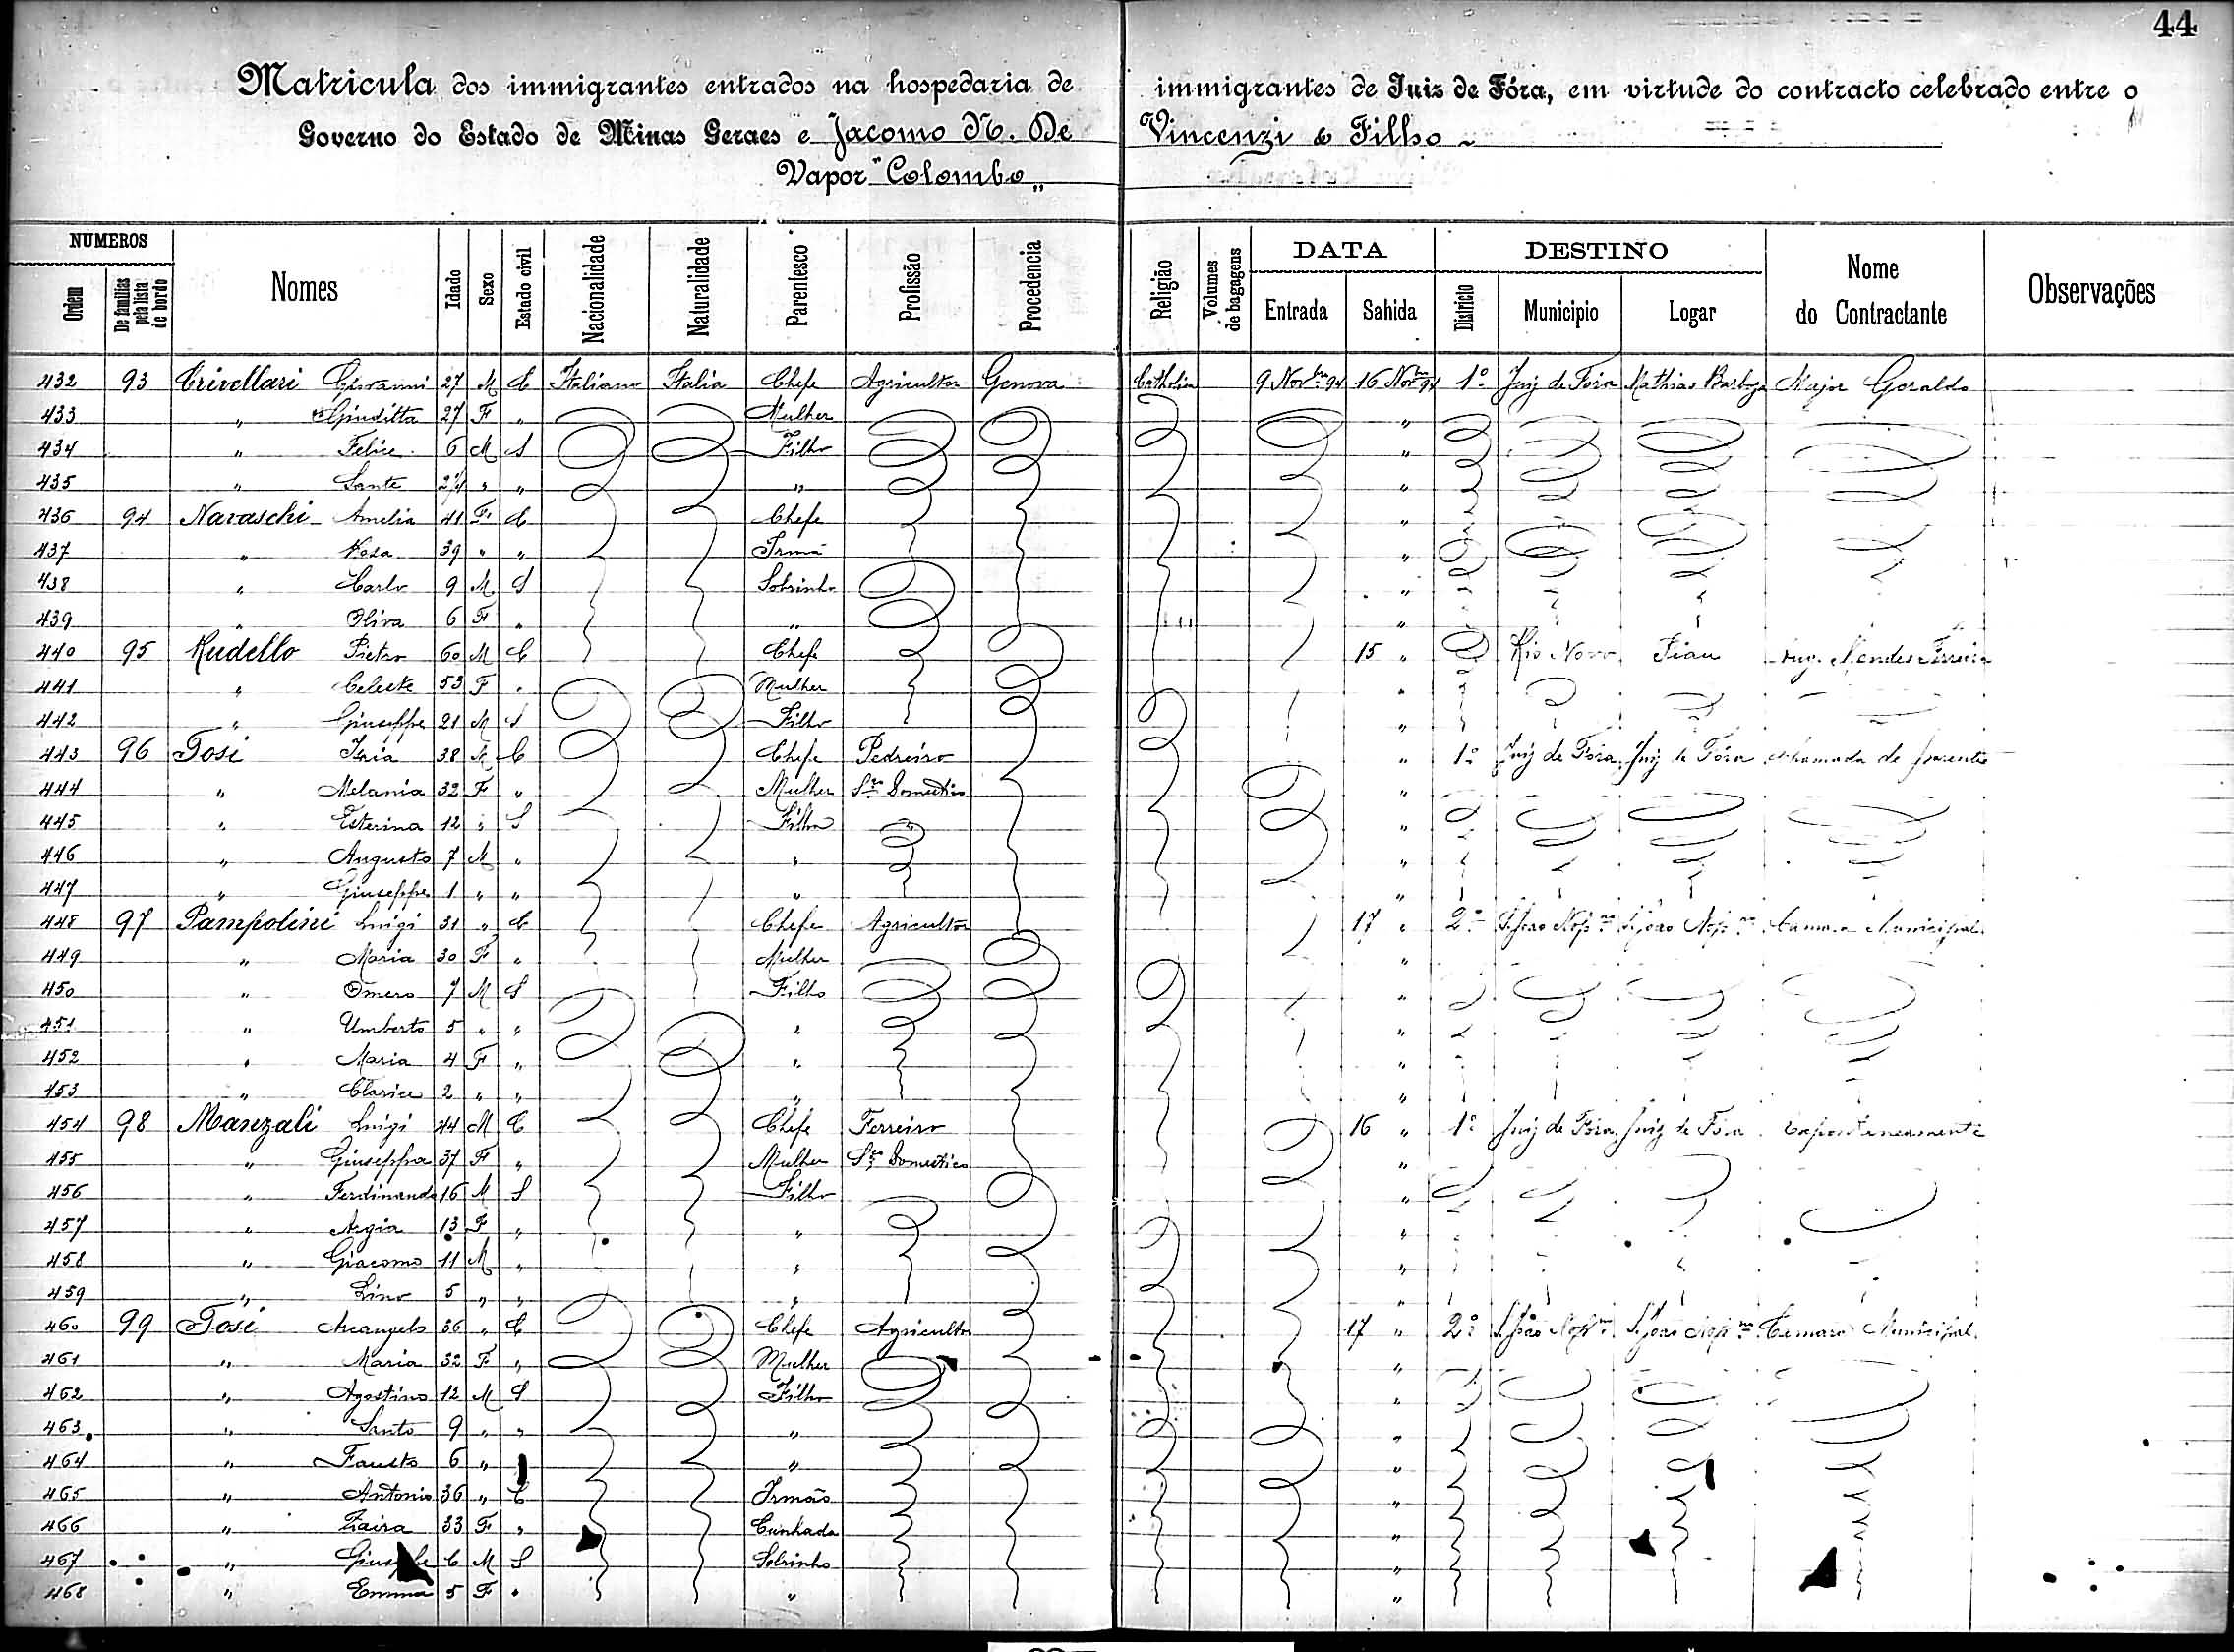 44
Matricula dos immigrantes entrados na hospedaria de immigrantes de Juiz de Fóra, em virtude do contracto celebrado entre o
Governo do Estado de Minas Geraes e Jacomo N. De Vincenzi & Filho
Vapor "Colombo"
NUMEROS DATA DESTINO
Ordem De familias pela lista de bordo Nomes Idade Sexo Estado civil Nacionalidade Naturalidade Parentesco Profissão Procedencia Religião Volumes de bagagens Entrada Sahida Districto Municipio Logar Nome do Contractante Observações
432 93 Crivellari Giovanni 27 M C Italiano Italia Chefe Agricultor Genova Catholica 9 Novbro 94 16 Novbro 94 1º Juiz de Fóra Mathias Barboza Major Geraldo
433 " Giuditta 27 F " Mulher "
434 " Felice 6 M S Filho "
435 " Sante 2 " " " "
436 94 Navaschi Amelia 41 F C Chefe "
437 " Rosa 39 " " Irmã "
438 " Carlo 9 M S Sobrinho "
439 " Oliva 6 F " " "
440 95 Rudello Pietro 60 M C Chefe 15 " Rio Novo Piau Mendes Ferreira
441 " Celeste 53 F " Mulher "
442 " Giuseppe 21 M S Filho "
443 96 Tosi 38 M C Chefe Pedreiro " 1º Juiz de Fóra Juiz de Fóra Chamada de parente
444 " Melania 32 F " Mulher Sço Domestico "
445 " Esterina 12 " S Filha " "
446 " Augusto 7 M " " "
447 " Giuseppe 1 " " " "
448 97 Pampolini Luigi 31 " C Chefe Agricultor 17 " 2º S. João Nepno S. João Nepno Camara Municipal
449 " Maria 30 F " Mulher "
450 " Omero 7 M S Filho "
451 " Umberto 5 " " " "
452 " Maria 4 F " " "
453 " Clarice 2 " " " "
454 98 Manzali Luigi 44 M C Chefe Ferreiro 16 " 1º Juiz de Fóra Juiz de Fóra Expontaneamente
455 " Giuseppa 37 F " Mulher Sço Domestico "
456 " Ferdinando 16 M S Filho "
457 " Argia 13 F " " "
458 " Giacomo 11 M " " "
459 " Lino 5 " " " "
460 99 Tosi Arcangelo 36 " C Chefe Agricultor 17 " 2º S. João Nepno S. João Nepno Camara Municipal
461 " Maria 32 F " Mulher "
462 " Agostino 12 M S Filho "
463 " Santo 9 " " " "
464 " Fausto 6 " " "
465 " Antonio 36 " C Irmão "
466 " Zaira 33 F " Cunhada "
467 " Giuseppe 6 M S Sobrinho "
468 " Emma 5 F " " "